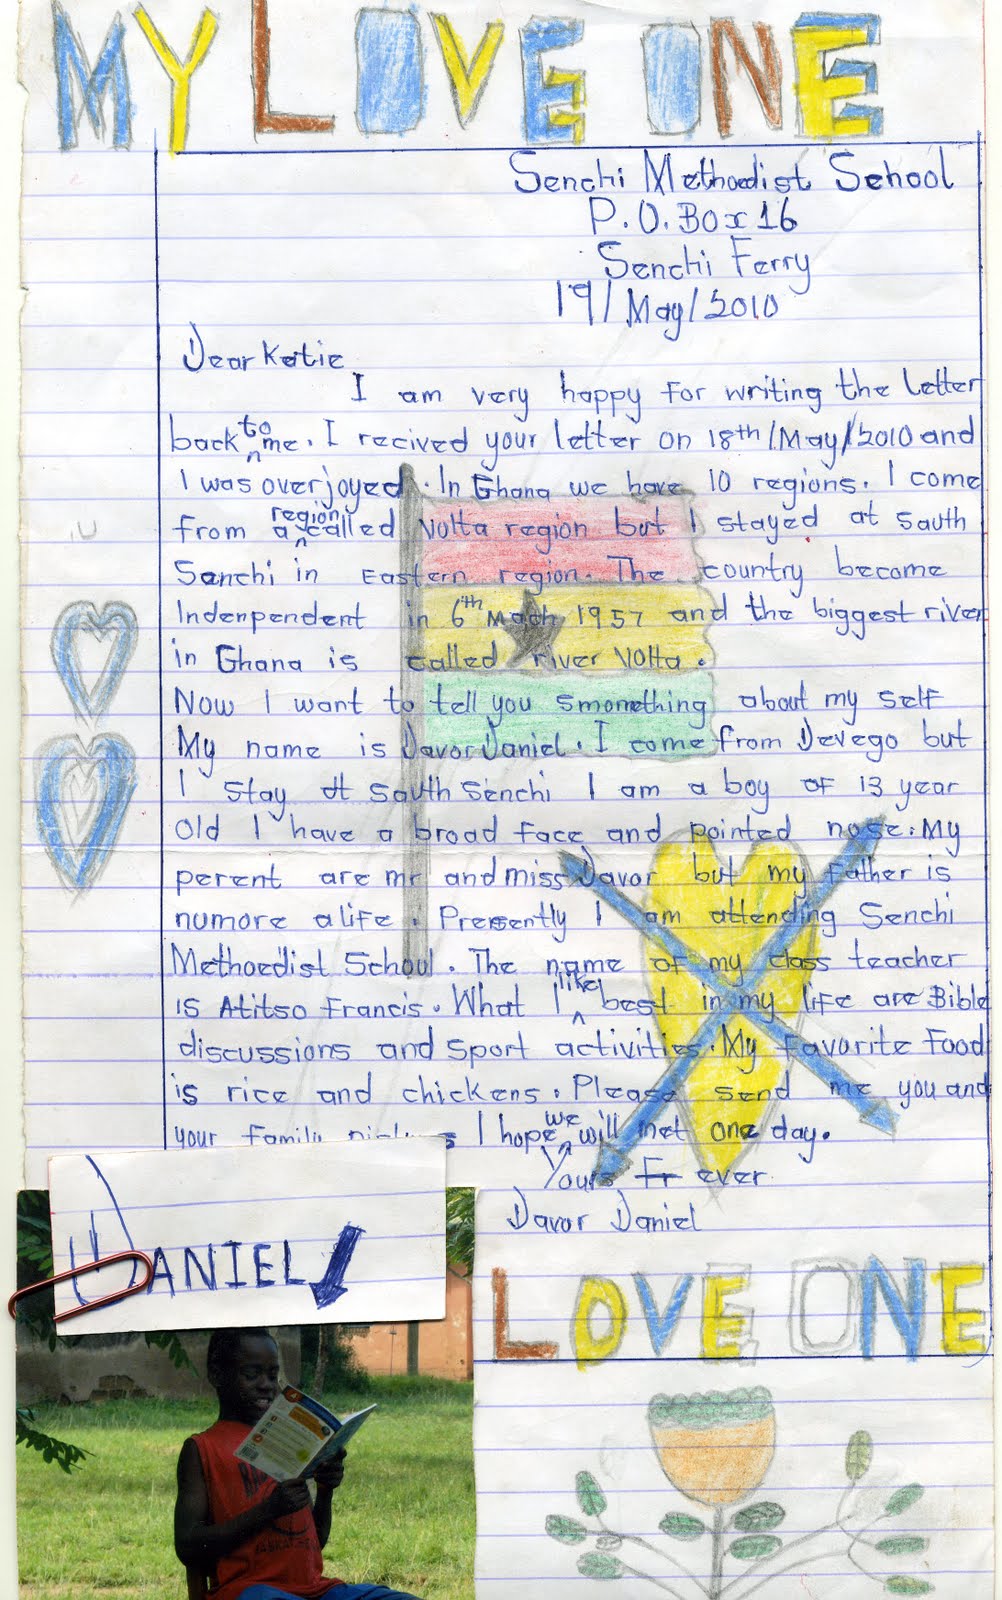 MY LOVE ONE
Senchi Methodist School
P.O. Box 16
Senchi Ferry
19/May/2010
Dear Katie
I am very happy for writing the letter
back to me. I recived your letter on 18th/May/2010 and
I was overjoyed. In Ghana we have 10 regions. I come
from a region called Volta region but I stayed at South
Sanchi in Eastern region. The country become
Indenpendent in 6th Mach 1957 and the biggest river
in Ghana is called river Volta.
Now I want to tell you smomething about my self
My name is Davor Daniel. I come from Devego but
I stay at South Senchi I am a boy of 13 year
old I have a broad face and pointed nose. My
perent are mr and miss Davor but my father is
numore alife. Presently I am attending Senchi
Methoedist School. The name of my class teacher
is Atitso Francis. What I like best in my life are Bible
discussions and sport activities. My favorite Food
is rice and chickens. Please send me you and
your family I hope we will met one day.
Yours Fr ever
Davor Daniel
DANIEL
LOVE ONE